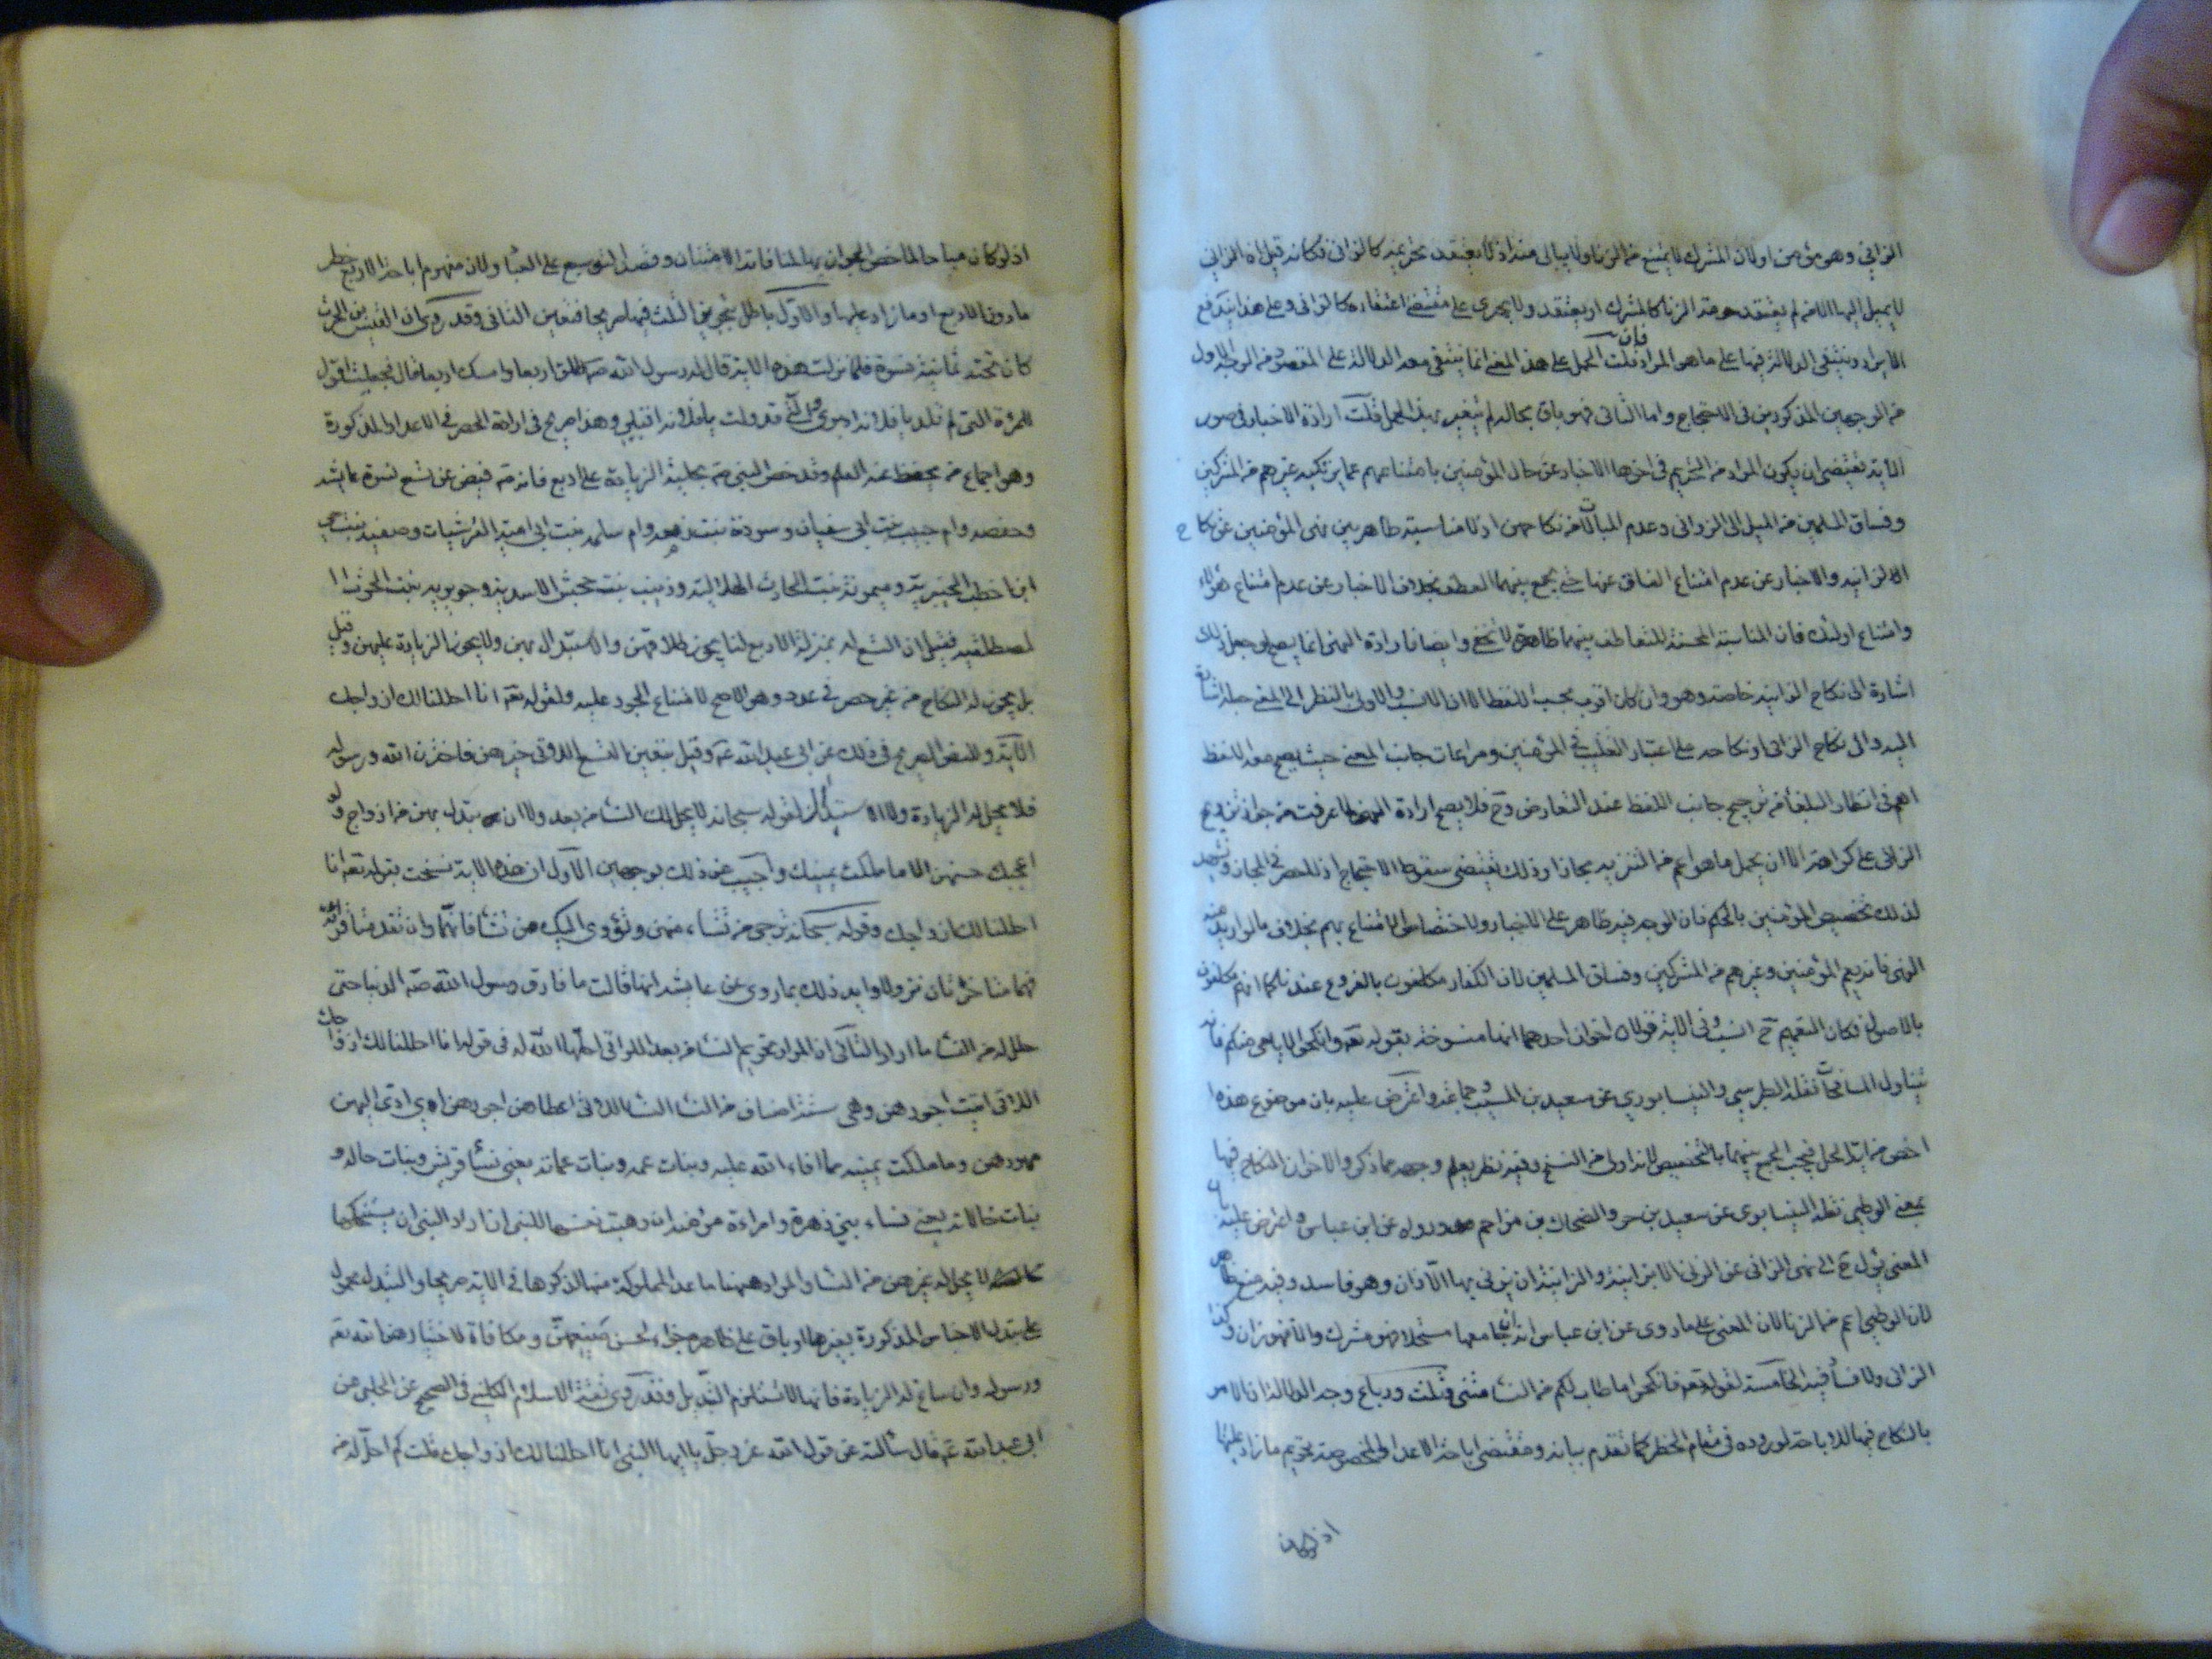 الزاني وهو مؤمن اولان المشرك لا يمتنع من الزنا ولا يبالي منه اذ لا يعتقد تحريمه كالزاني فكانه قيل ان الزاني
لا يميل اليها الا من لم يعتقد حرمة الزنا كالمشرك او يعتقد ولا يجري على مقتضى اعتقاده كالزاني وعلى هذا يندفع
الايراد وينتفي الدلالة فيها على ما هو المراد فان قلت الحمل على هذا المعنى انما ينتفي معه الدلالة على المقصود من الوجه الاول
من الوجهين المذكورين في الاحتجاج واما الثاني فهو باق بحاله لم يتغير بهذا الحمل قلت ارادة الاخبار في صور
الآية تقتضي ان يكون المراد من التحريم في اخرها الاخبار عن حال المؤمنين بامتناعهم عما يرتكبه غيرهم من المشركين
وفساق المسلمين من الميل الى الزواني وعدم المبالات من نكاحهن اذ لا مناسبة ظاهر بين نهي المؤمنين عن نكاح
الزانية والاخبار عن عدم امتناع الفساق عنها حتى يجمع بينهما العطف بخلاف الاخبار عن عدم امتناع هؤلاء
وامتناع اولئك فان المناسبة المحسنة للتعاطف بينهما ظاهرة لا تخفى وايضا ارادة النهي انما يصح لو جعل ذلك
اشارة الى نكاح الزانية خاصة وهو وان كان اقرب بحسب اللفظ الا ان الانسب والاولى بالنظر الى المعنى جعله اشارة
اليه والى نكاح الزاني او نكاحه على اعتبار التغليب في المؤمنين ومراعات جانب المعنى حيث يصح معه اللفظ
اهم في انظار البلغاء من ترجيح جانب اللفظ عند التعارض وح فلا يصح ارادة النهي لما عرفت من جواز تزويج
الزاني على كراهة الا ان يحمل ما هو اعم من التنزيه مجازا وذلك يقتضي سقوط الاحتجاج اذ للحصر في المجاز ويشهد
لذلك تخصيص المؤمنين بالحكم فان الوجه فيه ظاهر على الاخبار ولاختصاص الامتناع بهم بخلاف ما لو اريد منه
النهي فانه يعم المؤمنين وغيرهم من المشركين وفساق المسلمين لان الكفار مكلفون بالفروع عندنا كما انهم مكلفون
بالاصول فكان التعميم ح انسب وفي الآية قولان اخران احدهما انها منسوخة بقوله تعه وانكحوا الايامى منكم فانه
يتناول المسافحات نقله الطبرسي والنيسابوري عن سعيد بن المسيب وجماعة واعترض عليه بان موضوع هذه
اخص من اية الحل فيجب الجمع بينهما بالتخصيص لانه اولى من النسخ وفيه نظر يعلم وجهه مما ذكر والاخر ان النكاح فيها
بمعنى الوطي نقله النيسابوري عن سعيد بن جبير والضحاك بن مزاحم ورووه عن ابن عباس واعترض عليه بان
المعنى يؤل ح الى نهي الزاني عن الزنا الا بزانية والزانية ان يزني بها الا زان وهو فاسد وفيه منع ظاهر
لان الوطي اعم من الزنا لان المعنى على ما روي عن ابن عباس انه ان جامعها مستحلا فهو مشرك والا فهو زان وكذا
الزاني ولا فسا قيد الخامسة لقوله تعه فانكحوا ما طاب لكم من النساء مثنى وثلث ورباع وجه الدلالة ان الامر
بالنكاح فيها للاباحة لوروده في مقام الحظر كما تقدم بيانه ومقتضى اباحة الاعداد المخصوصة تحريم ما زاد عليها
اذ لو كان
اذ لو كان مباحا لما خص الجواز بها لمنافاته الامتنان وقصد التوسيع على العباد ولان مفهوم اباحة الاربع حظر
ما دون الاربع او ما زاد عليها والاول باطل بتجويز الثلث فيها صريحا فتعين الثاني وقد روي ان القيس بن الحرث
كان تحته ثمانية نسوة فلما نزلت هذه الاية قال له رسول الله صه طلق اربعا وامسك اربعا قال فجعلت اقول
للمرئة التي لم تلد يا فلانة ادبري وللتي قد ولدت يا فلانة اقبلي وهذا صريح في ارادة الحصر في الاعداد المذكورة
وهو اجماع من يحفظ عنه العلم وقد خص النبي صه بحلية الزيادة على اربع فانه صه قبض عن تسع نسوة عايشة
وحفصه وام حبيبه بنت ابي سفيان وسودة بنت زمعه وام سلمه بنت ابي امية القرشيات وصفيه بنت حي
ابن اخطب الخيبرية وميمونة بنت الحارث الهلالية وزينب بنت جحش الاسديه وجويريه بنت الحرث
المصطلقيه فقيل ان التسع له بمنزلة الاربع لنا يجوز طلاقهن والاستبدال بهن ولا يجوز الزيادة عليهن وقيل
بل يجوز له النكاح من غير حصر في عدد وهو الاصح لامتناع الجور عليه ولقوله تعه انا احللنا لك ازواجك
الاية وللنص الصريح في ذلك عن ابي عبد الله عه وقيل بتعين التسع اللاتي خيرهن فاخترن الله ورسوله
فلا يحل له الزيادة ولا الاستبدال لقوله سبحانه لا يحل لك النساء من بعد ولا ان تبدل بهن من ازواج ولو
اعجبك حسنهن الا ما ملكت يمينك واجيب عن ذلك بوجهين الاول ان هذه الاية نسخت بقوله تعه انا
احللنا لك ازواجك وقوله سبحانه ترجي من تشاء منهن وتؤوي اليك من تشاء فانهما وان تقدمتا قرائة
فهما متاخرتان نزولا وايد ذلك بما روي عن عايشه انها قالت ما فارق رسول الله صه الدنيا حتى
حلل له من النساء ما اراد الثاني ان المراد تحريم النساء من بعد اللاتي احلها الله له في قوله انا احللنا لك ازواجك
اللاتي اتيت اجورهن وهي ستة اصناف من النساء النساء اللاتي اعطاهن اجورهن اي ادى اليهن
مهورهن وما ملكت يمينه مما افاء الله عليه وبنات عمه وبنات عماته يعني نساء قريش وبنات خاله و
بنات خالاته يعني نساء بني زهرة وامراءة مؤمنة ان وهبت نفسها للنبي ان اراد النبي ان يستنكحها
لا يحل له غيرهن من النساء والمراد ههنا ما عدا المملوكة منها لذكرها في الاية صريحا والتبدل محمول
على تبدل الاجناس المذكورة بغيرها او باق على ظاهره جزاء لحسن صنيعهن ومكافاة لاختيارهن الله تعه
ورسوله وان ساغ له الزيادة فانها لا تستلزم التبديل وقد روى ثقة الاسلام الكليني في الصحيح عن الحلبي عن
ابي عبد الله عه قال سألته عن قول الله عز وجل يا ايها النبي انا احللنا لك ازواجك قلت كم احل له من